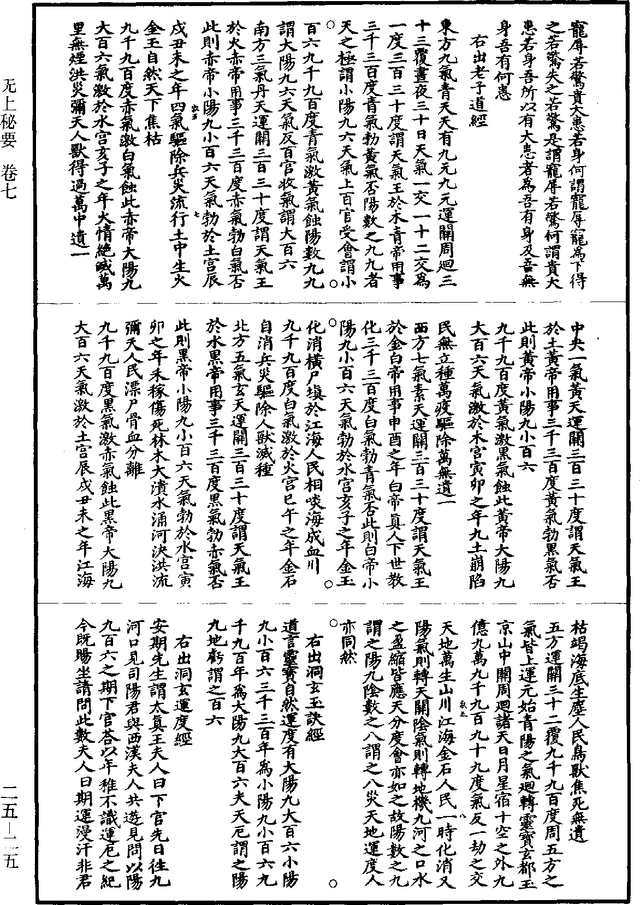 寵辱若驚貴大患若身何謂寵辱寵爲下得
之若驚失之若驚是謂寵辱若驚何謂貴大
患若身吾所以有大患者爲吾有身及吾無
身吾有何患
右出老子道經
東方九氣青天天有九元九元運關周迴三
十三覆晝夜三十日天氣一交一十二交爲
一度三百三十度謂天氣王於木青帝用事
三千三百度青氣勃黃氣否陽數之九九者
天之極謂小陽九六天氣上百官受會謂小
百六九千九百度青氣激黃氣蝕陽數九九
謂大陽九六天氣反百官收氣謂大百六
南方三氣丹天運關三百三十度謂天氣王
於火赤帝用事三千三百度赤氣勃白氣否
此則赤帝小陽九小百六天氣勃於土宮辰
戌丑未之年四氣驅除兵災流行土中生火
金玉自然天下焦枯
九千九百度赤氣激白氣蝕此赤帝大陽九
大百六氣激於水宮亥子之年火情絕滅萬
里無煙洪災彌天人獸得過萬中遺一
中央一氣黃天運關三百三十度謂天氣王
於土黃帝用事三千三百度黃氣勃黑氣否
此則黃帝小陽九小百六
九千九百度黃氣激黑氣蝕此黃帝大陽九
大百六天氣激於木宮寅卯之年九土崩陷
民無立種萬疫驅除萬無遺一
西方七氣素天運關三百三十度謂天氣王
於金白帝用事申酉之年白帝真人下世教
化三千三百度白氣勃青氣否此則白帝小
陽九小百六天氣勃於水宮亥子之年金玉
化消橫尸塡於江海人民相啖海成血川
九千九百度白氣激於火宮巳午之年金石
自消兵災驅除人獸滅種
北方五氣玄天運關三百三十度謂天氣王
於水黑帝用事三千三百度黑氣勃赤氣否
此則黑帝小陽九小百六天氣勃於木宮寅
卯之年禾稼傷死林木大潰水涌河決洪流
彌天人民漂尸骨血分離
九千九百度黑氣激赤氣蝕此黑帝大陽九
大百六天氣激於土宮辰戌丑未之年江海
枯竭海底生塵人民鳥獸焦死無遺
五方運關三十二覆九千九百度周五方之
氣皆上運元始青陽之氣迴轉靈寶玄都玉
京山中關周迴諸天日月星宿十空之外九
億九萬九千九百九十九度氣反一劫之交
天地萬生山川江海金石人民一時化消又
陽氣則轉天關陰氣則轉地機九河之口水
之盈縮皆應天分度會亦如之故陽數之九
謂之陽九陰數之八謂之八災天地運度人
亦同然
右出洞玄玉訣經
道言靈寶自然運度有大陽九大百六小陽
九小百六三千三百年爲小陽九小百六九
千九百年爲大陽九大百六夫天厄謂之陽
九地虧謂之百六
右出洞玄運度經
安期先生謂太真王夫人曰下官先日往九
河口見司陽君與西漢夫人共遊見問以陽
九百六之期下官荅以年稚不識運厄之紀
今既賜坐請問此數夫人曰期運漫汗非君
无上秘要 卷七
二五—二五